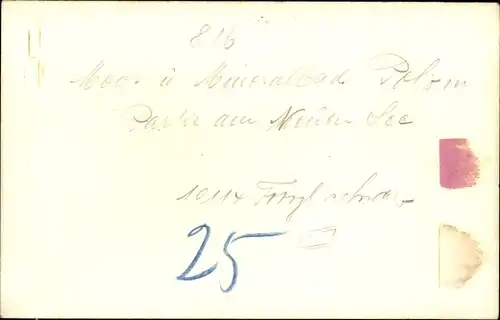 816
Moor u Mineralbad Polzin
Partie am Neuen See
25